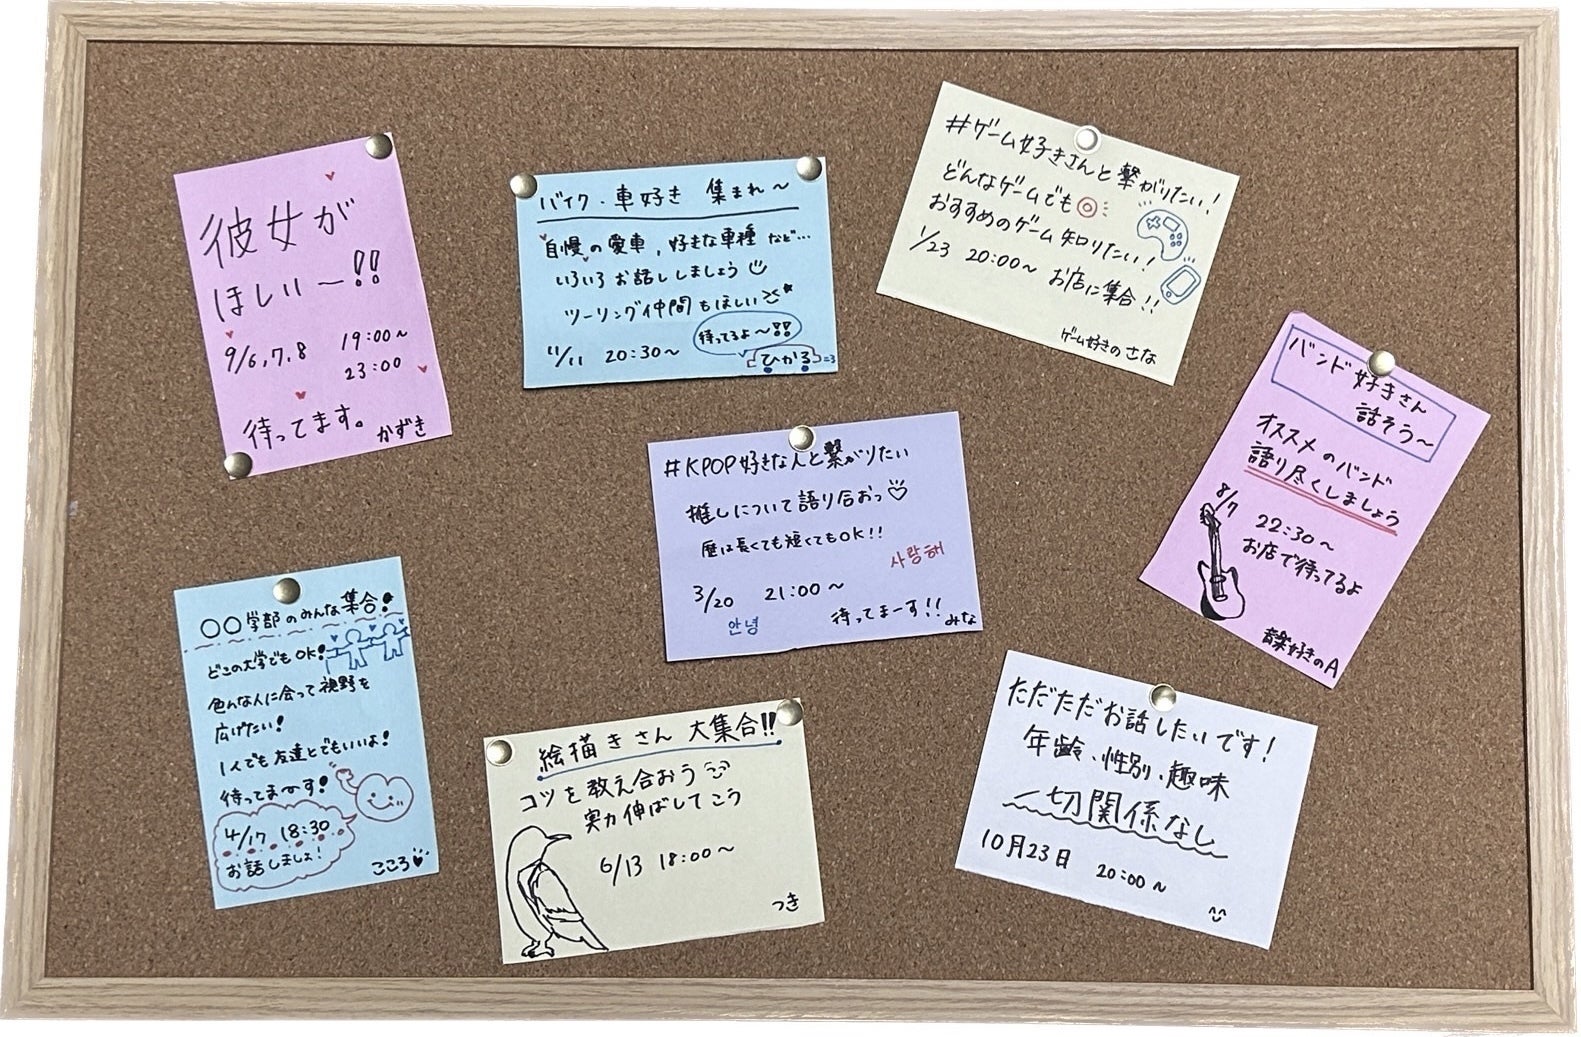 彼女が
ほしいー!!
9/6,7,8 19:00〜
23:00
待ってます。
かずき
バイク・車好き 集まれ〜
自慢の愛車,好きな車種など…
いろいろお話ししましょう
ツーリング仲間もほしい
待ってるよ〜!!
11/11 20:30〜
ひかる
#ゲーム好きさんと繋がりたい!
どんなゲームでも◎
おすすめのゲーム知りたい!
1/23 20:00〜 お店に集合!!
ゲーム好きのさな
バンド好きさん
話そう〜
オススメのバンド
語り尽くしましょう
8/7 22:30〜
お店で待ってるよ
音楽好きのA
#KPOP好きな人と繋がりたい
推しについて語り合おっ♡
歴は長くても短くてもOK!!
사랑해
3/20 21:00〜
안녕
待ってまーす!!
みな
○○学部のみんな集合!
どこの大学でもOK!
色んな人に会って視野を
広げたい!
1人でも友達とでもいいよ!
待ってまーす!
4/17 18:30
お話しましょ!
こころ
絵描きさん 大集合!!
コツを教え合おう
実力伸ばしてこう
6/13 18:00〜
つき
ただただお話したいです!
年齢、性別、趣味
一切関係なし
10月23日 20:00〜